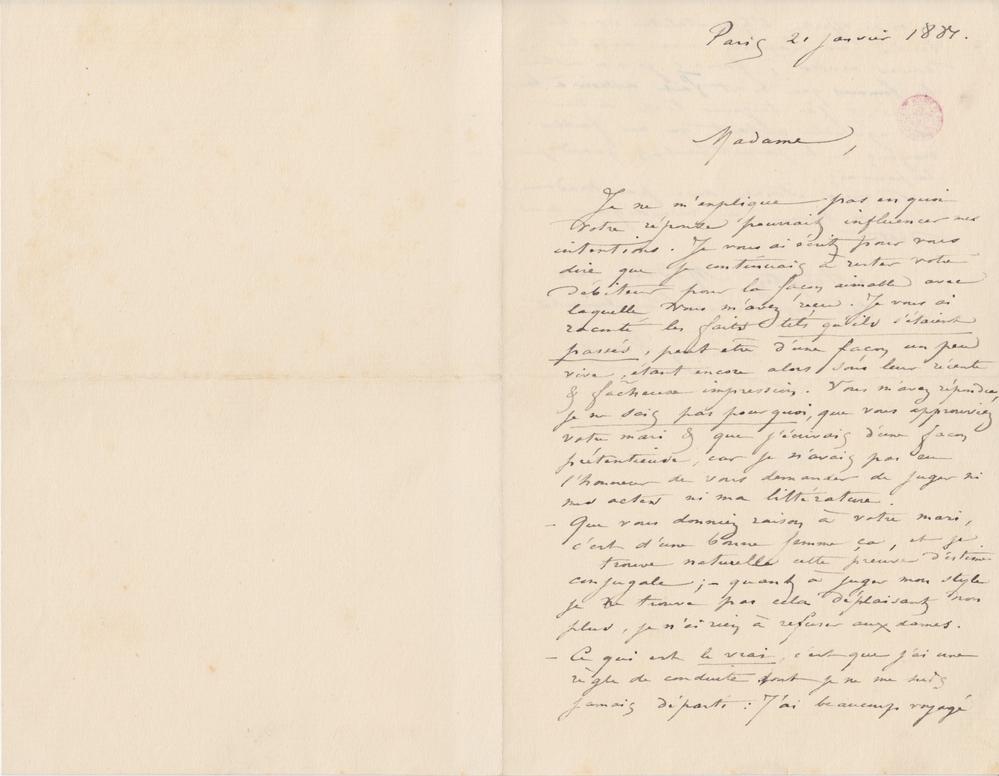 Paris 21 janvier 188
Madame,
Je ne m'explique pas en quoi
Votre réponse pourrait influencer mes
intentions. Je vous ai écrit pour vous
dire que je continuais à rester votre
débiteur pour la façon aimable avec
laquelle Vous m'avez reçu. Je vous ai
raconté les faits tels qu'ils s'étaient
passés, peut etre d'une façon un peu
vive, étant encore alors sous leur récente
& fâcheuse impression. Vous m'avez répondu,
je ne sais pas pourquoi, que vous approuviez
votre mari & que j'écrivais d'une façon
prétentieuse, car je n'avais pas eu
l'honneur de vous demander de juger ni
mes actes ni ma littérature.
- Que vous donniez raison à votre mari,
c'est d'une bonne femme ça, et je
trouve naturelle cette preuve d'estime
conjugale ; - quant à juger mon style
je ne trouve pas cela déplaisant non
plus, je n'ai rien à refuser aux dames.
- Ce qui est le vrai, c'est que j'ai une
règle de conduite dont je ne me suis
jamais départi : J'ai beaucoup voyagé